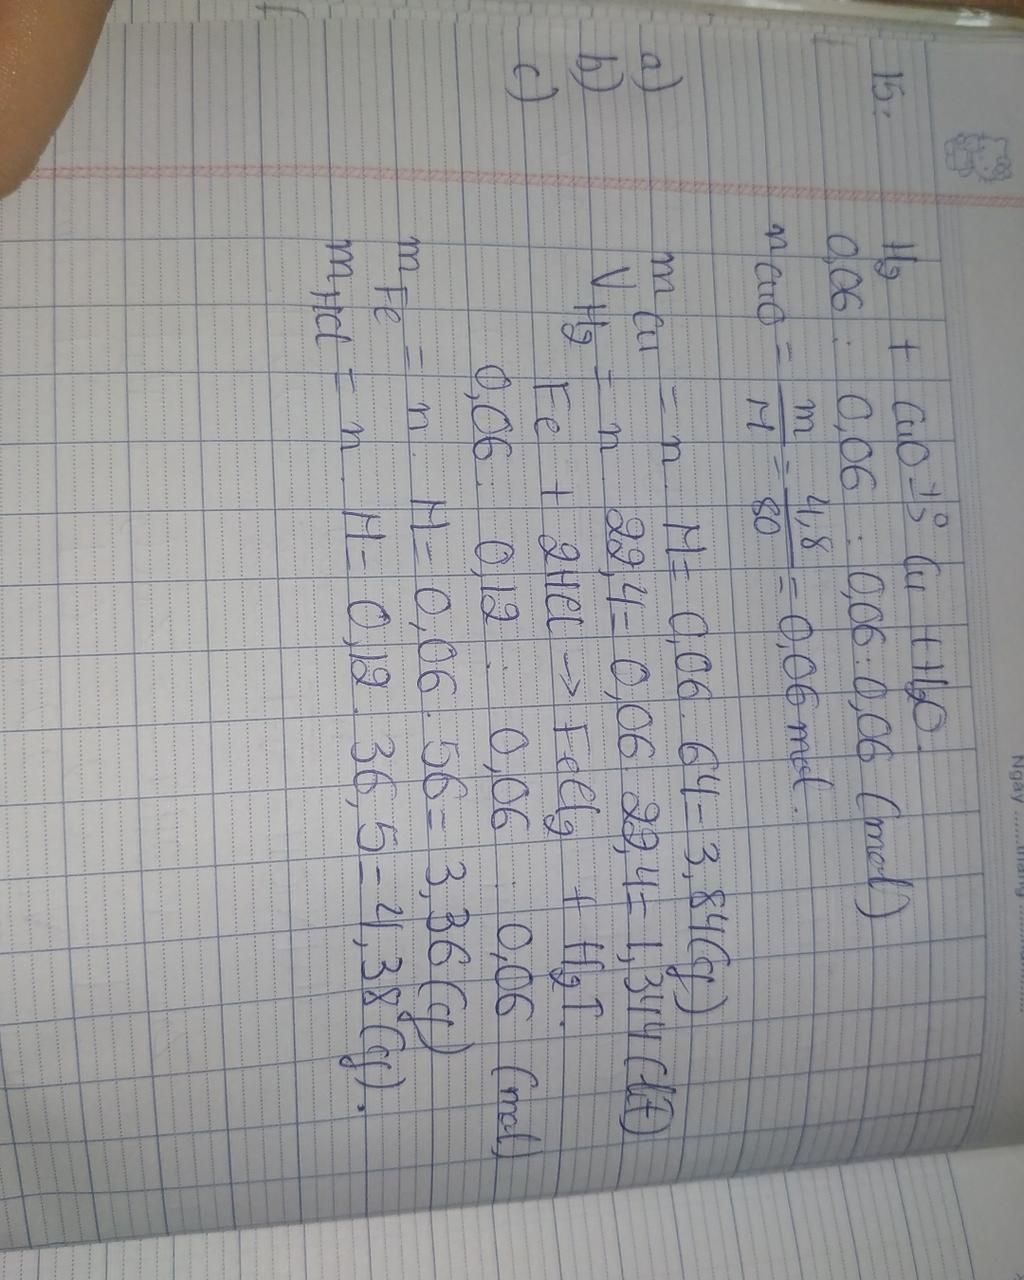 Ngày ...... tháng
15. H2 + CuO t° Cu + H2O.
0,06 : 0,06 : 0,06 : 0,06 (mol)
nCuO = m/M = 4,8/80 = 0,06 mol.
a) mCu = n . M = 0,06 . 64 = 3,84 (g)
b) VH2 = n . 22,4 = 0,06 . 22,4 = 1,344 (lít)
c) Fe + 2HCl → FeCl2 + H2↑.
0,06 : 0,12 : 0,06 : 0,06 (mol)
mFe = n . M = 0,06 . 56 = 3,36 (g)
mHCl = n . M = 0,12 . 36,5 = 4,38 (g).